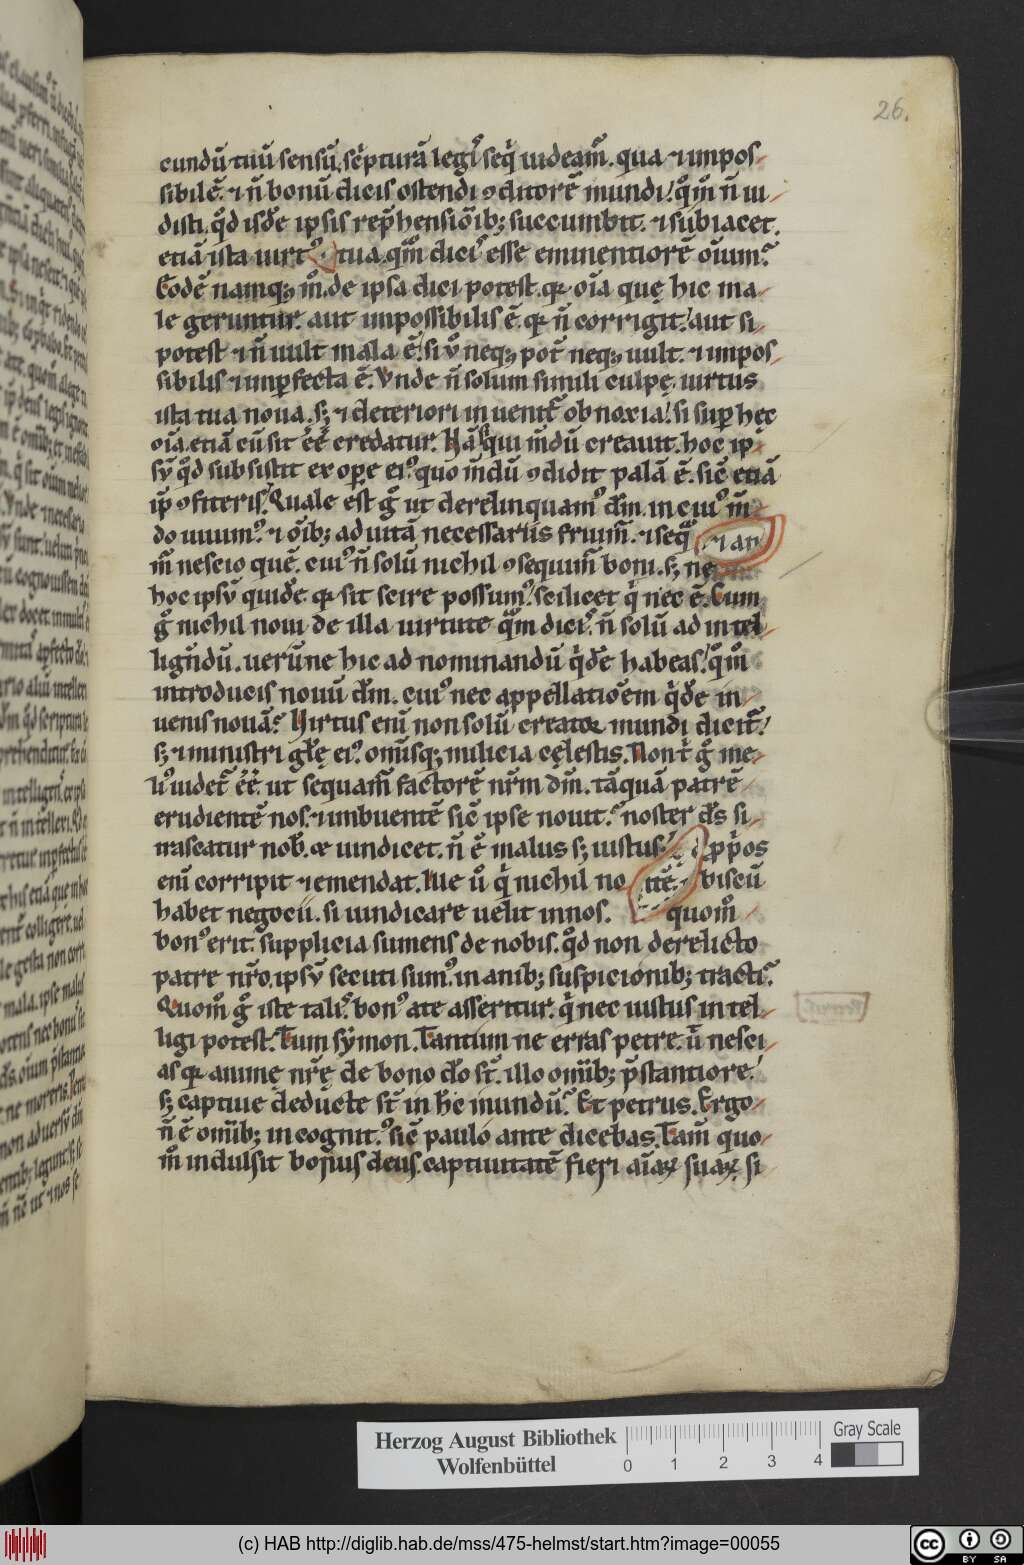 26.
cundū tuū sensū, sc̄pturā legiꝰ seq̇ uideam̄. qua ⁊ impos
sibilē. ⁊ n̄ bonū dicis ostendi ꝯditorē mundi! qm̄ n̄ ui
disti. qd̄ isdē ipsis rep̄hensiōibꝫ succumbit. ⁊ subiacet.
etiā ista uirtꝰ tua. qm̄ diciꝰ esse eminentiorē oīum.
Eodē namqꝫ m̄. de ipsa dici potest. qꝛ oīa que hic ma
le geruntur. aut impossibilis ē. qꝛ n̄ corrigit. aut si
potest ⁊ n̄ uult mala ē. si ū neqꝫ pot̄ neqꝫ uult. ⁊ impos
sibilis ⁊ imꝑfecta ē. Vnde n̄ solum simili culpę. uirtus
ista tua noua. sꝫ ⁊ deteriori inuenit̄ obnoxia! si suꝑ hec
oīa. etiā eū sit ēē credatur. Nā qui m̄dū creauit. hoc ip
sū qd̄ subsistit ex oꝑe eiꝰ quo m̄dū ꝯdidit palā ē. sic̄ etiā
ip̄ ꝯfiteris. Quale est g̊ ut derelinquamꝰ dm̄. in cuiꝰ m̄
do uiuimꝰ. ⁊ oīb; ad uitā necessariis fruim̄. ⁊ seq ⁊ an
m̄ nescio quē. cuiꝰ n̄ solū nichil ꝯsequim̄ boni. sꝫ ne
hoc ipsū quidē. qꝛ sit scire possumꝰ. scilicet q̇ nec ē. Cum
g̊ nichil noui de illa uirtute qm̄ diciꝰ. n̄ solū ad intel
lign̄dū. uerūne hic ad nominandū q̇dē habeas! qm̄
introducis nouū dm̄. cuiꝰ nec appellatiōem q̇dē in
uenis nouā. Virtus enī non solū creator mundi dicit̄!
sꝫ ⁊ ministri glę eiꝰ. omīsqꝫ milicia cęlestis. Non t̄ g̊ me
liꝰ uidet̄ ēē. ut sequam̄ factorē nr̄m dm̄. tāquā patrē
erudientē nos. ⁊ imbuentē sic̄ ipse nouit. noster ds̄ si
irascatur nob̄. & uindicet. n̄ ē malus sꝫ iustus. ꝓp̄os
enī corripit ⁊ emendat. Iste ū q̇ nichil no itē. biscū
habet negocii. si uindicare uelit innos. quom̄
bonꝰ erit. supplicia sumens de nobis. qd̄ non derelicto
patre nr̄o. ipsū secuti sumꝰ. in anibꝫ suspicionibꝫ tracti.
Quom̄ g̊ iste taliꝰ. bonꝰ a te asseritur. q̇ nec iustus intel
ligi potest. Tum sẏmon. Tantum ne erras petre. ū nesci
as qꝛ animę nr̄ę de bono do st̄. illo omīb; p̄stantiore!
sꝫ captiue deducte st̄ in hc̄ mundū. Et petrus. Ergo
n̄ ē omīb; incognitꝰ. sic̄ paulo ante dicebas. Tam̄ quo
m̄ indulsit bonus deus. captiuitatē fieri aīaꝝ suaꝝ. si
Herzog August Bibliothek
Wolfenbüttel
0 1 2 3 4
Gray Scale
(c) HAB http://diglib.hab.de/mss/475-helmst/start.htm?image=00055
cc BY SA